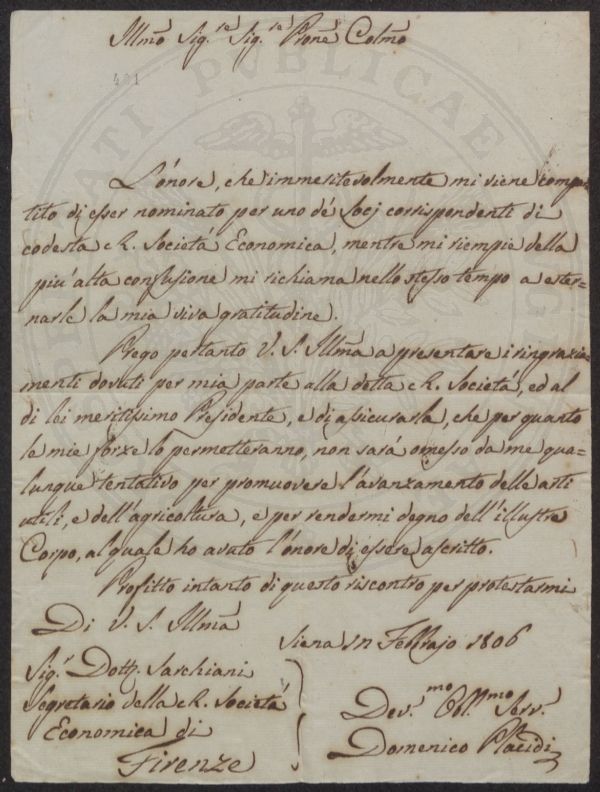 Illmo Sig.re Sig.re Prone Colmo
401
L'onore, che immeritevolmente mi viene compar=
tito di esser nominato per uno de' Socj corrispondenti di
codesta R. Società Economica, mentre mi riempie della
piu' alta confusione mi richiama nello stesso tempo a ester=
narle la mia viva gratitudine.
Prego pertanto V. S. Illma a presentare i ringrazia=
menti dovuti per mia parte alla detta R. Società, ed al
di lei meritissimo Presidente, e di assicurarla, che per quanto
le mie forze lo permetteranno, non sarà omesso da me qua=
lunque tentativo per promuovere l'avanzamento delle arti
utili, e dell'agricoltura, e per rendermi degno dell'illustre
Corpo, al quale ho avuto l'onore di essere ascritto.
Profitto intanto di questo riscontro per protestarmi
Di V. S. Illma
Siena Febbrajo 1806
Sig.r Dott. Sarchiani
Segretario della R. Società
Economica di
Firenze
Dev.mo Obl.mo Serv.
Domenico Placidi